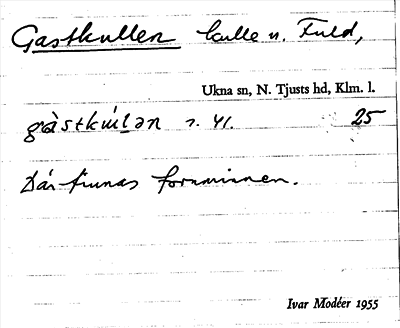 Gastkullen kulle n. Fuld,
Ukna sn, N. Tjusts hd, Klm. l.
gàstkúlən r. 41. 25
Där finnas fornminnen.
Ivar Modéer 1955